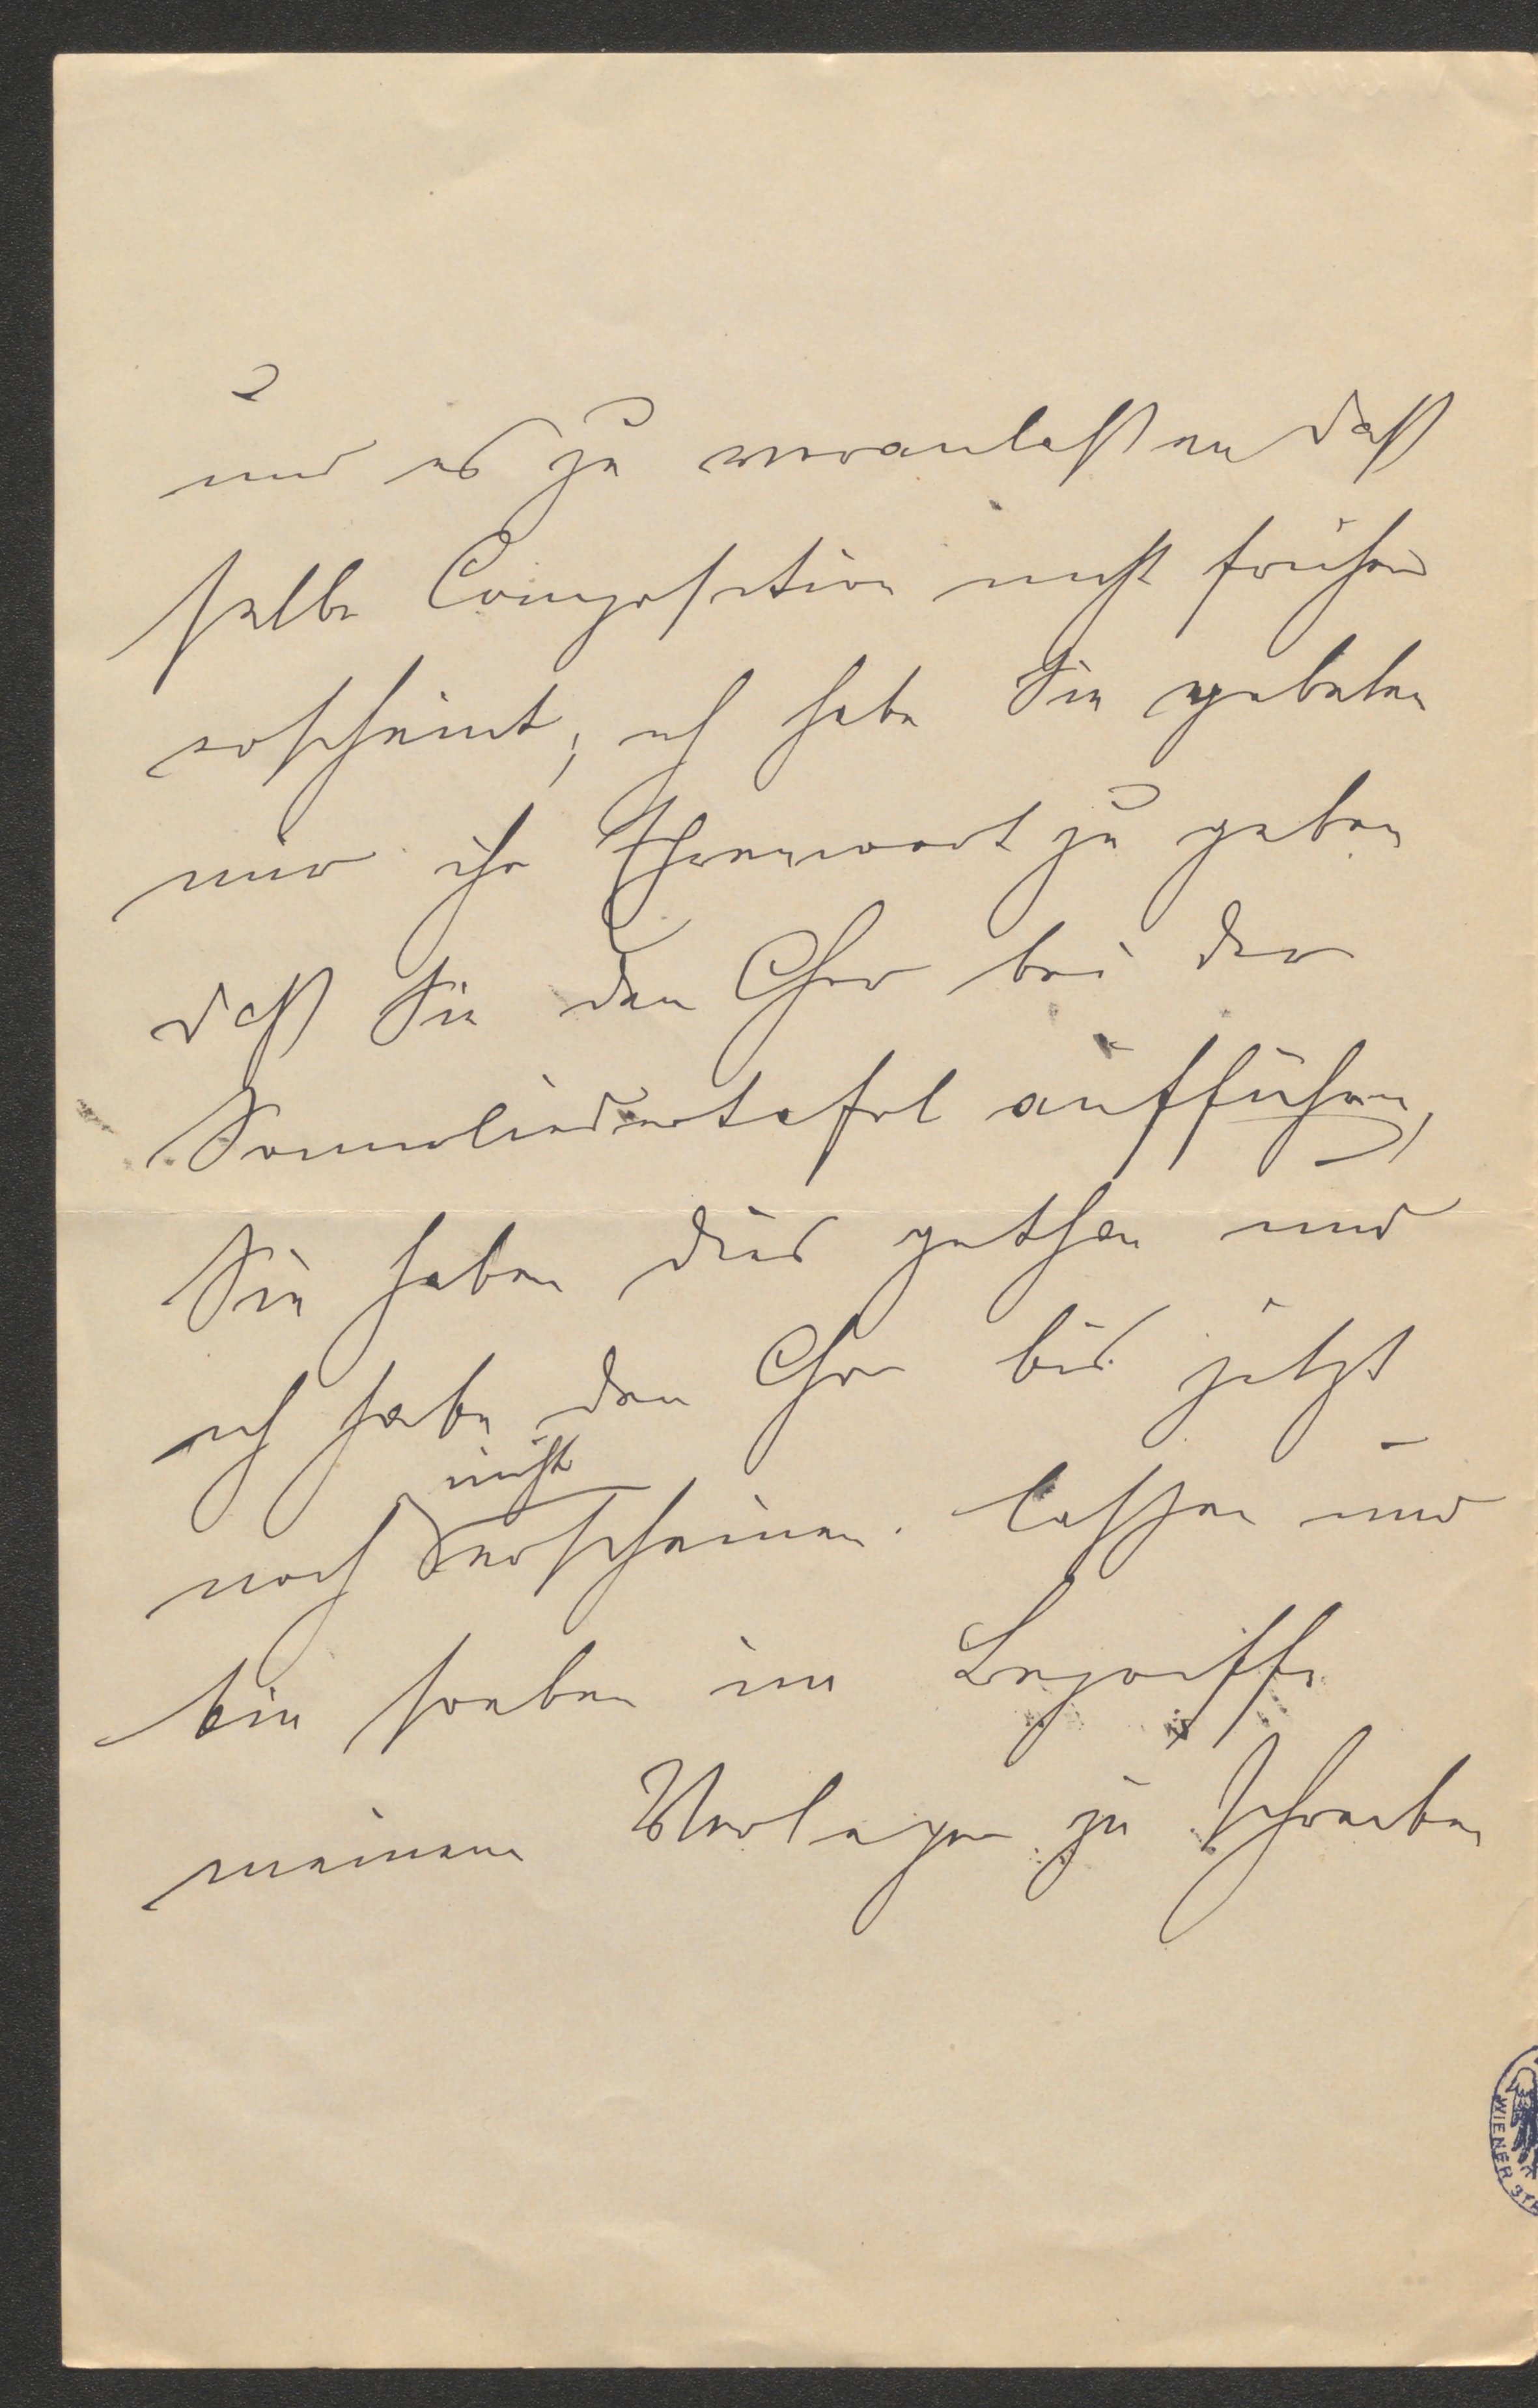 und es zu veranlassen daß
selbe Composition nicht früher
erscheint, ich habe Sie gebeten
mir ihr Ehrenwort zu geben
daß Sie den Chor bei der
Sommerliedertafel aufführen,
Sie haben dies gethan und
ich habe den Chor bis jetzt
nicht
noch erscheinen lassen und
bin soeben im Begriffe
meinem Verleger zu schreiben
WIENER